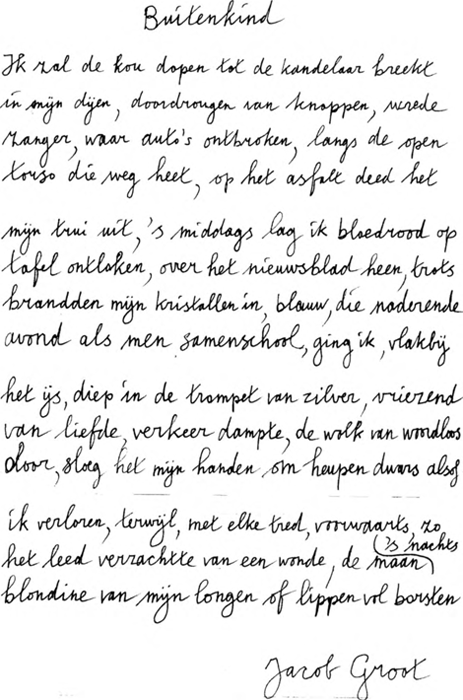 Buitenkind
Ik zal de kou dopen tot de kandelaar breekt
in mijn dijen, doordrongen van knoppen, wrede
zanger, waar auto's ontbroken, langs de open
torso die weg heet, op het asfalt deed het
mijn trui uit, 's middags lag ik bloedrood op
tafel ontloken, over het nieuwsblad heen, trots
brandden mijn kristallen in, blauw, die naderende
avond als men samenschool, ging ik, vlakbij
het ijs, diep in de trompet van zilver, vriezend
van liefde, verkeer dampte, de wolk van woordloos
door, sloeg het mijn handen om heupen dwars alsof
ik verloren, terwijl, met elke tred, voorwaarts, zo
('s nachts
het leed verzachtte van een wonde, de maan)
blondine van mijn longen of lippen vol borsten
Jacob Groot